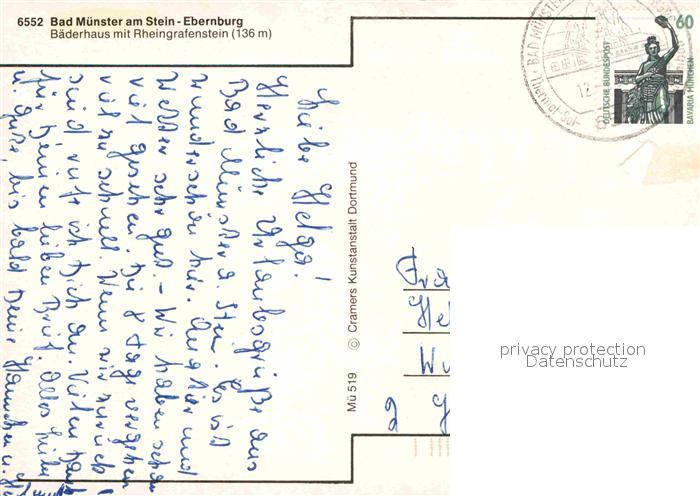 6552 Bad Münster am Stein - Ebernburg
Bäderhaus mit Rheingrafenstein (136 m)
Liebe Helga!
Herzliche Urlaubsgrüße aus
Bad Münster a. Stein. Es ist
wunderschön hier. und
Wetter sehr gut. - Wir haben schon
viel gesehen. Die 8 Tage vergehen
viel zu schnell. Wenn wir zurück
sind rufe ich Dich an. Vielen Dank
für Deinen lieben Brief. Alles Liebe
u. Gute bis bald Deine
Mü 519
© Cramers Kunstanstalt Dortmund
BAD MÜNSTER
Thermal-Sol-
12
60
DEUTSCHE BUNDESPOST
BAVARIA MÜNCHEN
Fra
He
Wu
2
privacy protection
Datenschutz